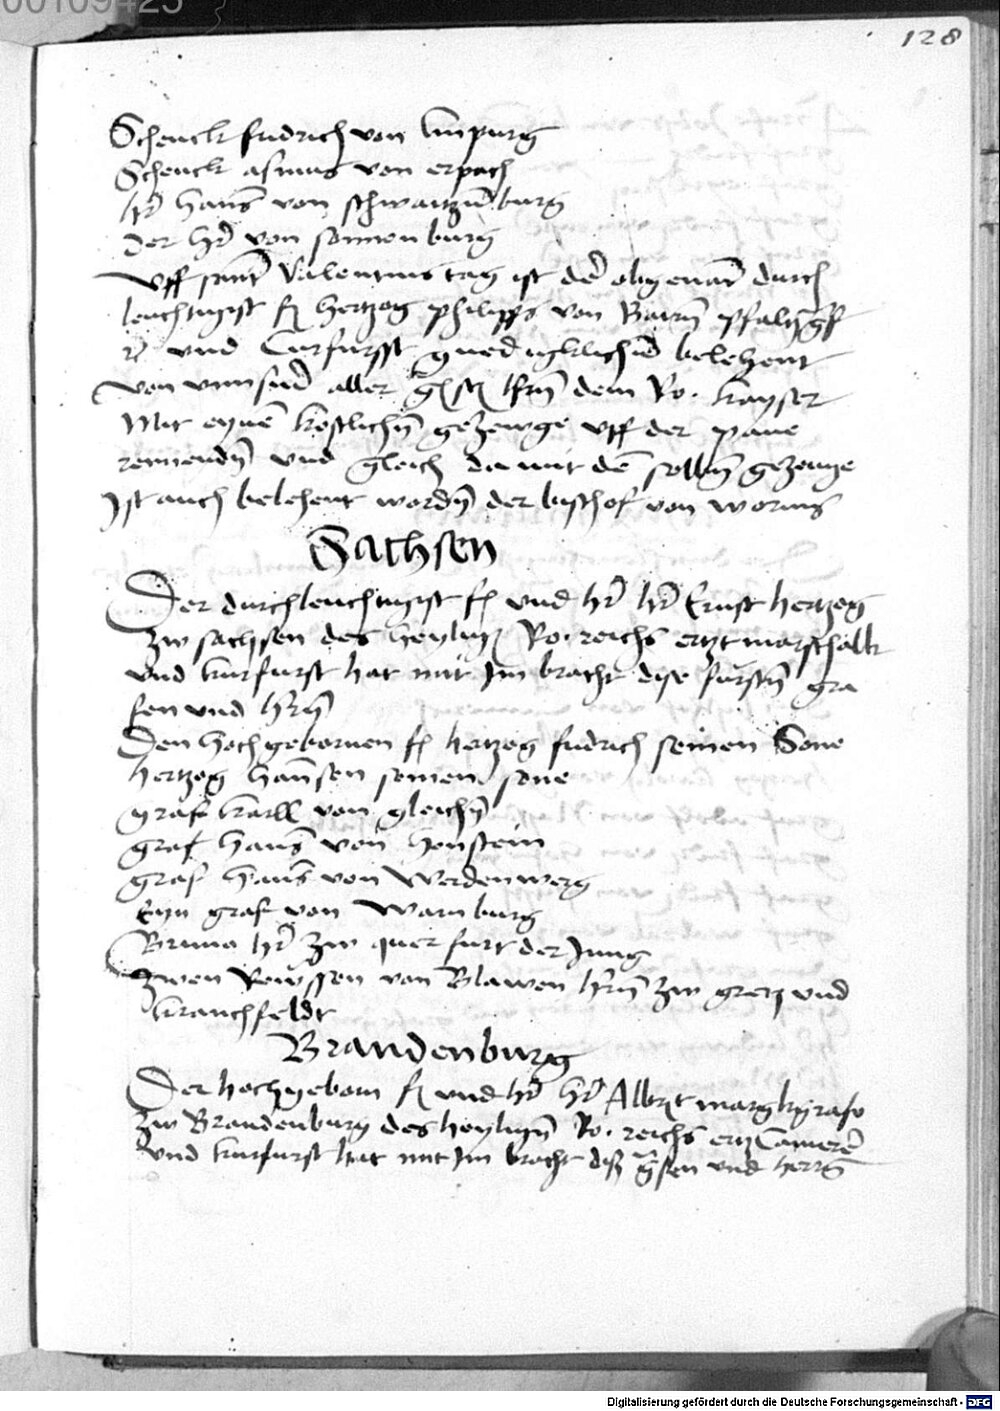 00109425
128
Schenck fridrich von limpurg
Schenck asmus von erpach
hr̄ Hans von schwartzn̄burg
der hr̄ von sonnenburg
Uff sant Valentins tag ist der obgenāt durch
leuchtigist f hertzog philipps von Bairn̄ pfaltzgff
und Curfurst gnediglichn̄ belehent
von unnserm aller dem Ro. kayser
Mit eynē kostlichn̄ gezewge uff der pane
rennendn̄ und gleich damit dē selbn̄ gezeuge
Ist auch belehent wordn̄ der bischof von worms
Sachsen
Der durchleuchtigist f und hr̄ hr̄ Ernst hertzog
zw sachsen des heylign̄ Ro. reichs ertzmarschalk
und kurfurst hat mit Im bracht dise furstn̄ gra
fen und hr̄n̄
Den hochgebornen f hertzog fridrich seinen Sone
hertzog Hannsen seinen sone
graf karll von gleichn̄
graf Hans von Honstein
graf Hans von Werdenwerg
Eyn graf von Warnburg
Bruno hr̄ zw querfurt der Jung
Zwen Rewssen von Blawen hr̄n̄ zw gretz und
kranchfeldt
Brandenburg
Der hochgeborn f und hr̄ hr̄ Albrecht marggrafe
zw Brandenburg des heylign̄ Ro. reichs ertz Camerer
und kurfurst hat mit Im bracht diß grafen und herrn̄
Digitalisierung gefördert durch die Deutsche Forschungsgemeinschaft - DFG